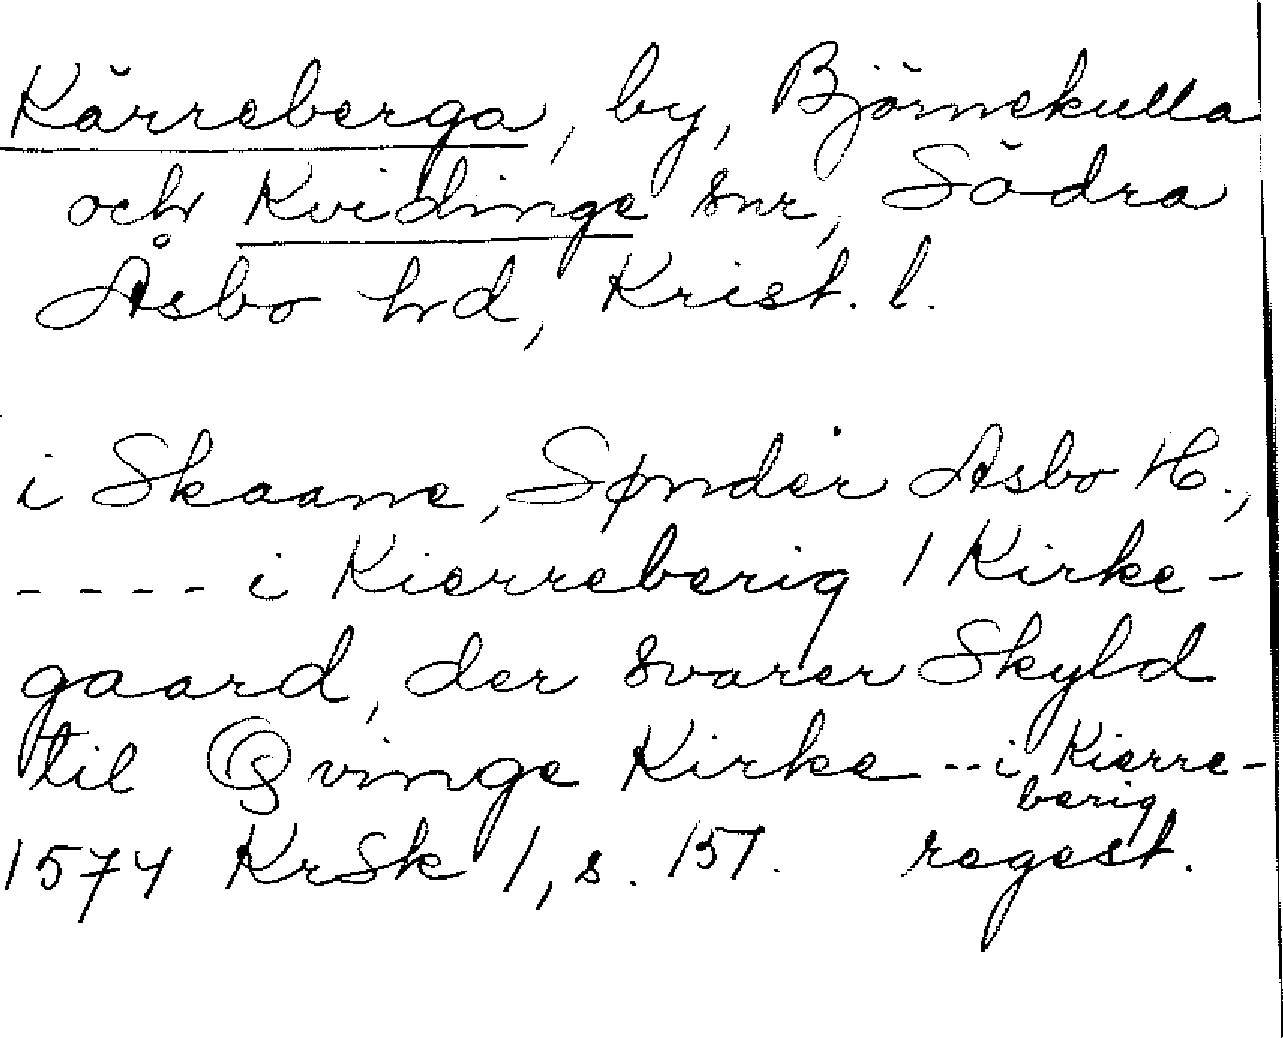 Kärreberga, by, Björnekulla
och Kvidinge snr, Södra
Åsbo hd, Krist. l.
i Skaane, Sønder Asbo H.,
---- i Kierreberig 1 Kirke-
gaard, der svarer Skyld
til Qvinge Kirke -- i Kierre-
berig
1574 KrSk 1, s. 157. regest.